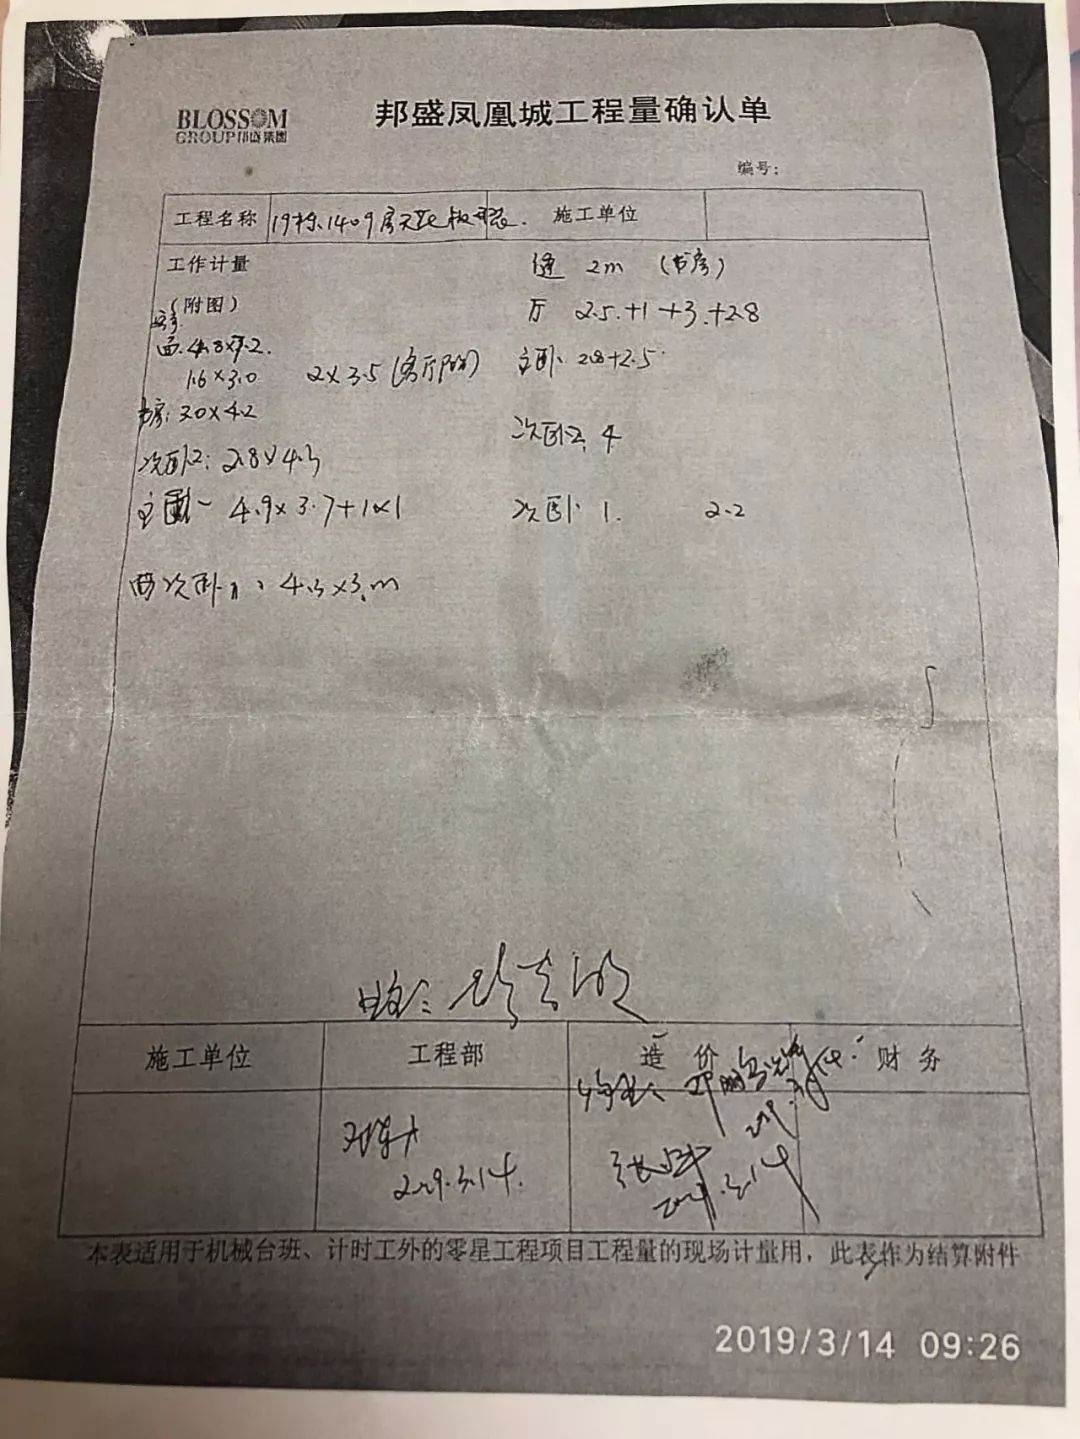 BLOSSOM
GROUP 邦盛集团
邦盛凤凰城工程量确认单
编号:
工程名称 19栋1409房天花板 施工单位
工作计量
缝 2m (书房)
(附图)
厅 2.5+1+3+2.8
面 4.8×7.2
1.6×3.0 2×3.5 (客厅) 主卧: 2.8+2.5
书房: 3.0×4.2
次卧2: 4
次卧2: 2.8×4.3
主卧 4.9×3.7+1×1 次卧 1. 2.2
次卧1: 4.3×3.m
施工单位 工程部 造价 财务
2019.3.14.
2019.3.14
本表适用于机械台班、计时工外的零星工程项目工程量的现场计量用，此表作为结算附件
2019/3/14 09:26